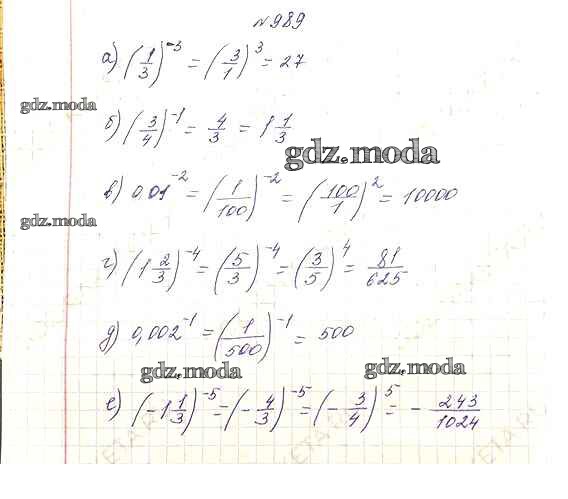 №989
а) (1/3)^-3 = (3/1)^3 = 27
gdz.moda
б) (3/4)^-1 = 4/3 = 1 1/3
gdz.moda
в) 0,01^-2 = (1/100)^-2 = (100/1)^2 = 10000
gdz.moda
г) (1 2/3)^-4 = (5/3)^-4 = (3/5)^4 = 81/625
д) 0,002^-1 = (1/500)^-1 = 500
gdz.moda gdz.moda
е) (-1 1/3)^-5 = (-4/3)^-5 = (-3/4)^5 = -243/1024